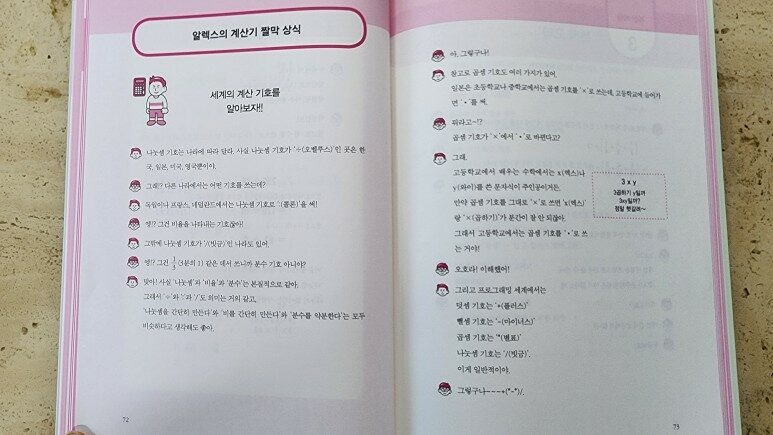 알렉스의 계산기 짤막 상식
세계의 계산 기호를
알아보자!!
나눗셈 기호는 나라에 따라 달라. 사실 나눗셈 기호가 '÷(오벨루스)'인 곳은 한
국, 일본, 미국, 영국뿐이야.
그래!? 다른 나라에서는 어떤 기호를 쓰는데?
독일이나 프랑스, 네덜란드에서는 나눗셈 기호로 ':(콜론)'을 써!
엥!? 그건 비율을 나타내는 기호잖아!
그밖에 나눗셈 기호가 '/(빗금)'인 나라도 있어.
엥!? 그건 1/3(3분의 1) 같은 데서 쓰니까 분수 기호 아니야?
맞아! 사실 '나눗셈'과 '비율'과 '분수'는 본질적으로 같아.
그래서 '÷'와 ':'과 '/'도 의미는 거의 같고,
'나눗셈을 간단히 만든다'와 '비를 간단히 만든다'와 '분수를 약분한다'는 모두
비슷하다고 생각해도 좋아.
72
아, 그렇구나!
참고로 곱셈 기호도 여러 가지가 있어.
일본은 초등학교나 중학교에서는 곱셈 기호를 '×'로 쓰는데, 고등학교에 들어가
면 '·'를 써.
뭐라고~!?
곱셈 기호가 '×'에서 '·'로 바뀐다고?
그래.
고등학교에서 배우는 수학에서는 x(엑스)나
y(와이)를 쓴 문자식이 주인공이거든.
만약 곱셈 기호를 그대로 '×'로 쓰면 'x(엑스)
랑 '×(곱하기)'가 분간이 잘 안 되잖아.
그래서 고등학교에서는 곱셈 기호를 '·'로 쓰
는 거야!
3 x y
3곱하기 y일까
3xy일까?
정말 헷갈려~
오호라! 이해했어!
그리고 프로그래밍 세계에서는
덧셈 기호는 '+(플러스)'
뺄셈 기호는 '-(마이너스)'
곱셈 기호는 '*(별표)'
나눗셈 기호는 '/(빗금)'.
이게 일반적이야.
그렇구나~~~+(*-*)/.
73